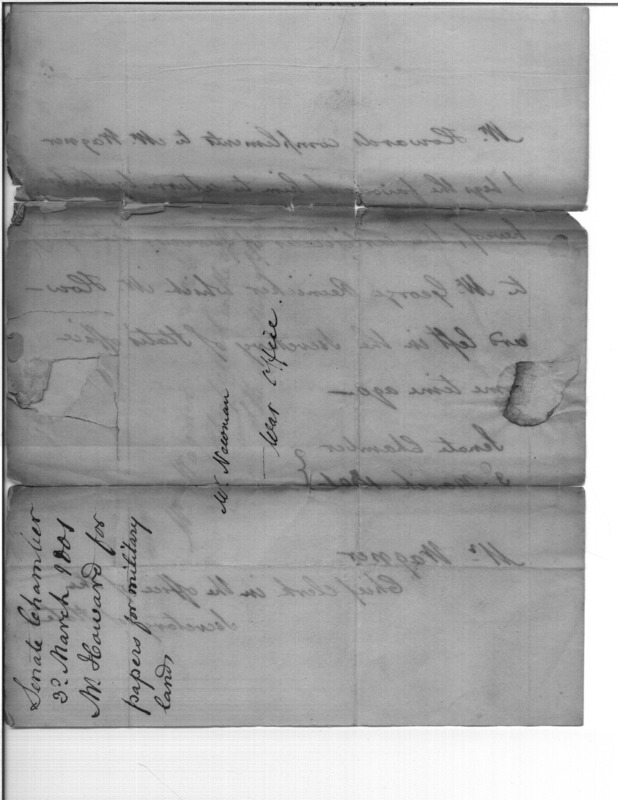 Senate Chamber
3d March 1801
Mr. Howard for
papers for military
lands
Mr. Newman
War Office.
Mr. Howards compliments to Mr. Wagner
I beg the favor of him to return by the
to Mr. George Reinicker which Mr. How-
ard left in the Secretary of States office
time ago—
Senate Chamber
3d March 1801
Mr. Wagner
Chief Clerk in the office
Secretary